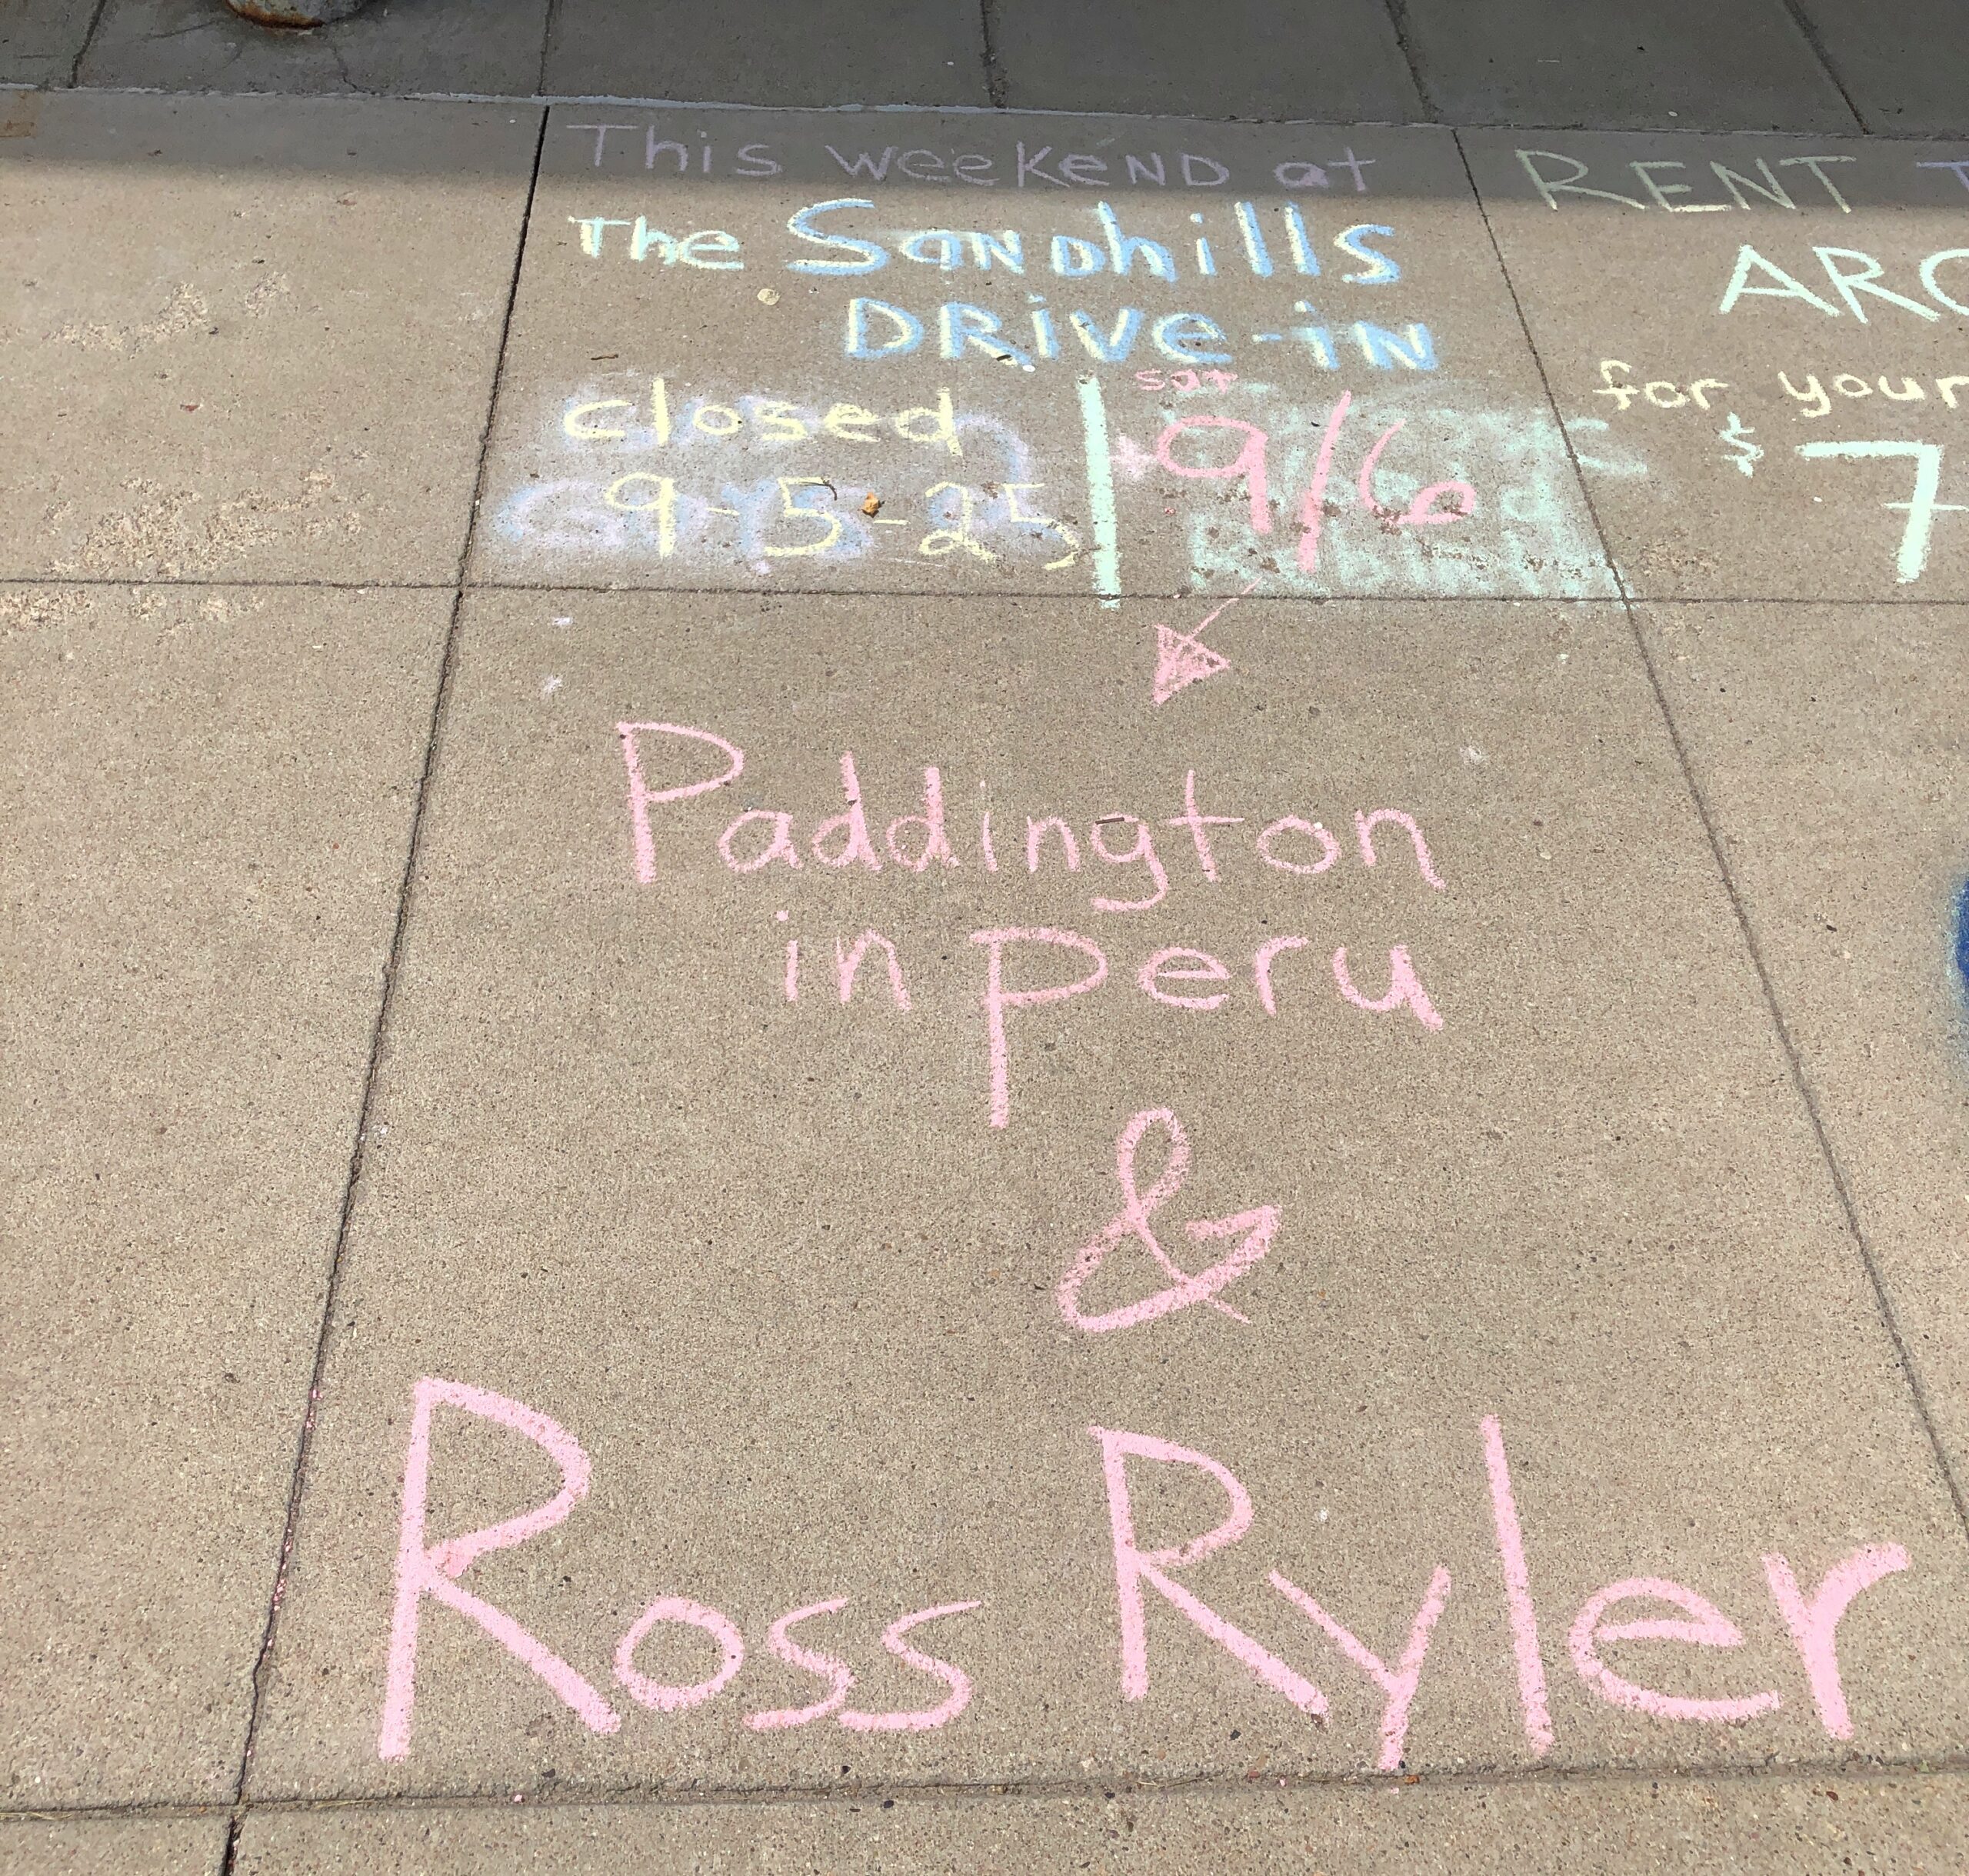 This weekeND at
The SaNDhills
DRive-iN
closed
9-5-25
sat
9/6
Paddington
in Peru
&
Ross Ryler
RENT
for your
$7